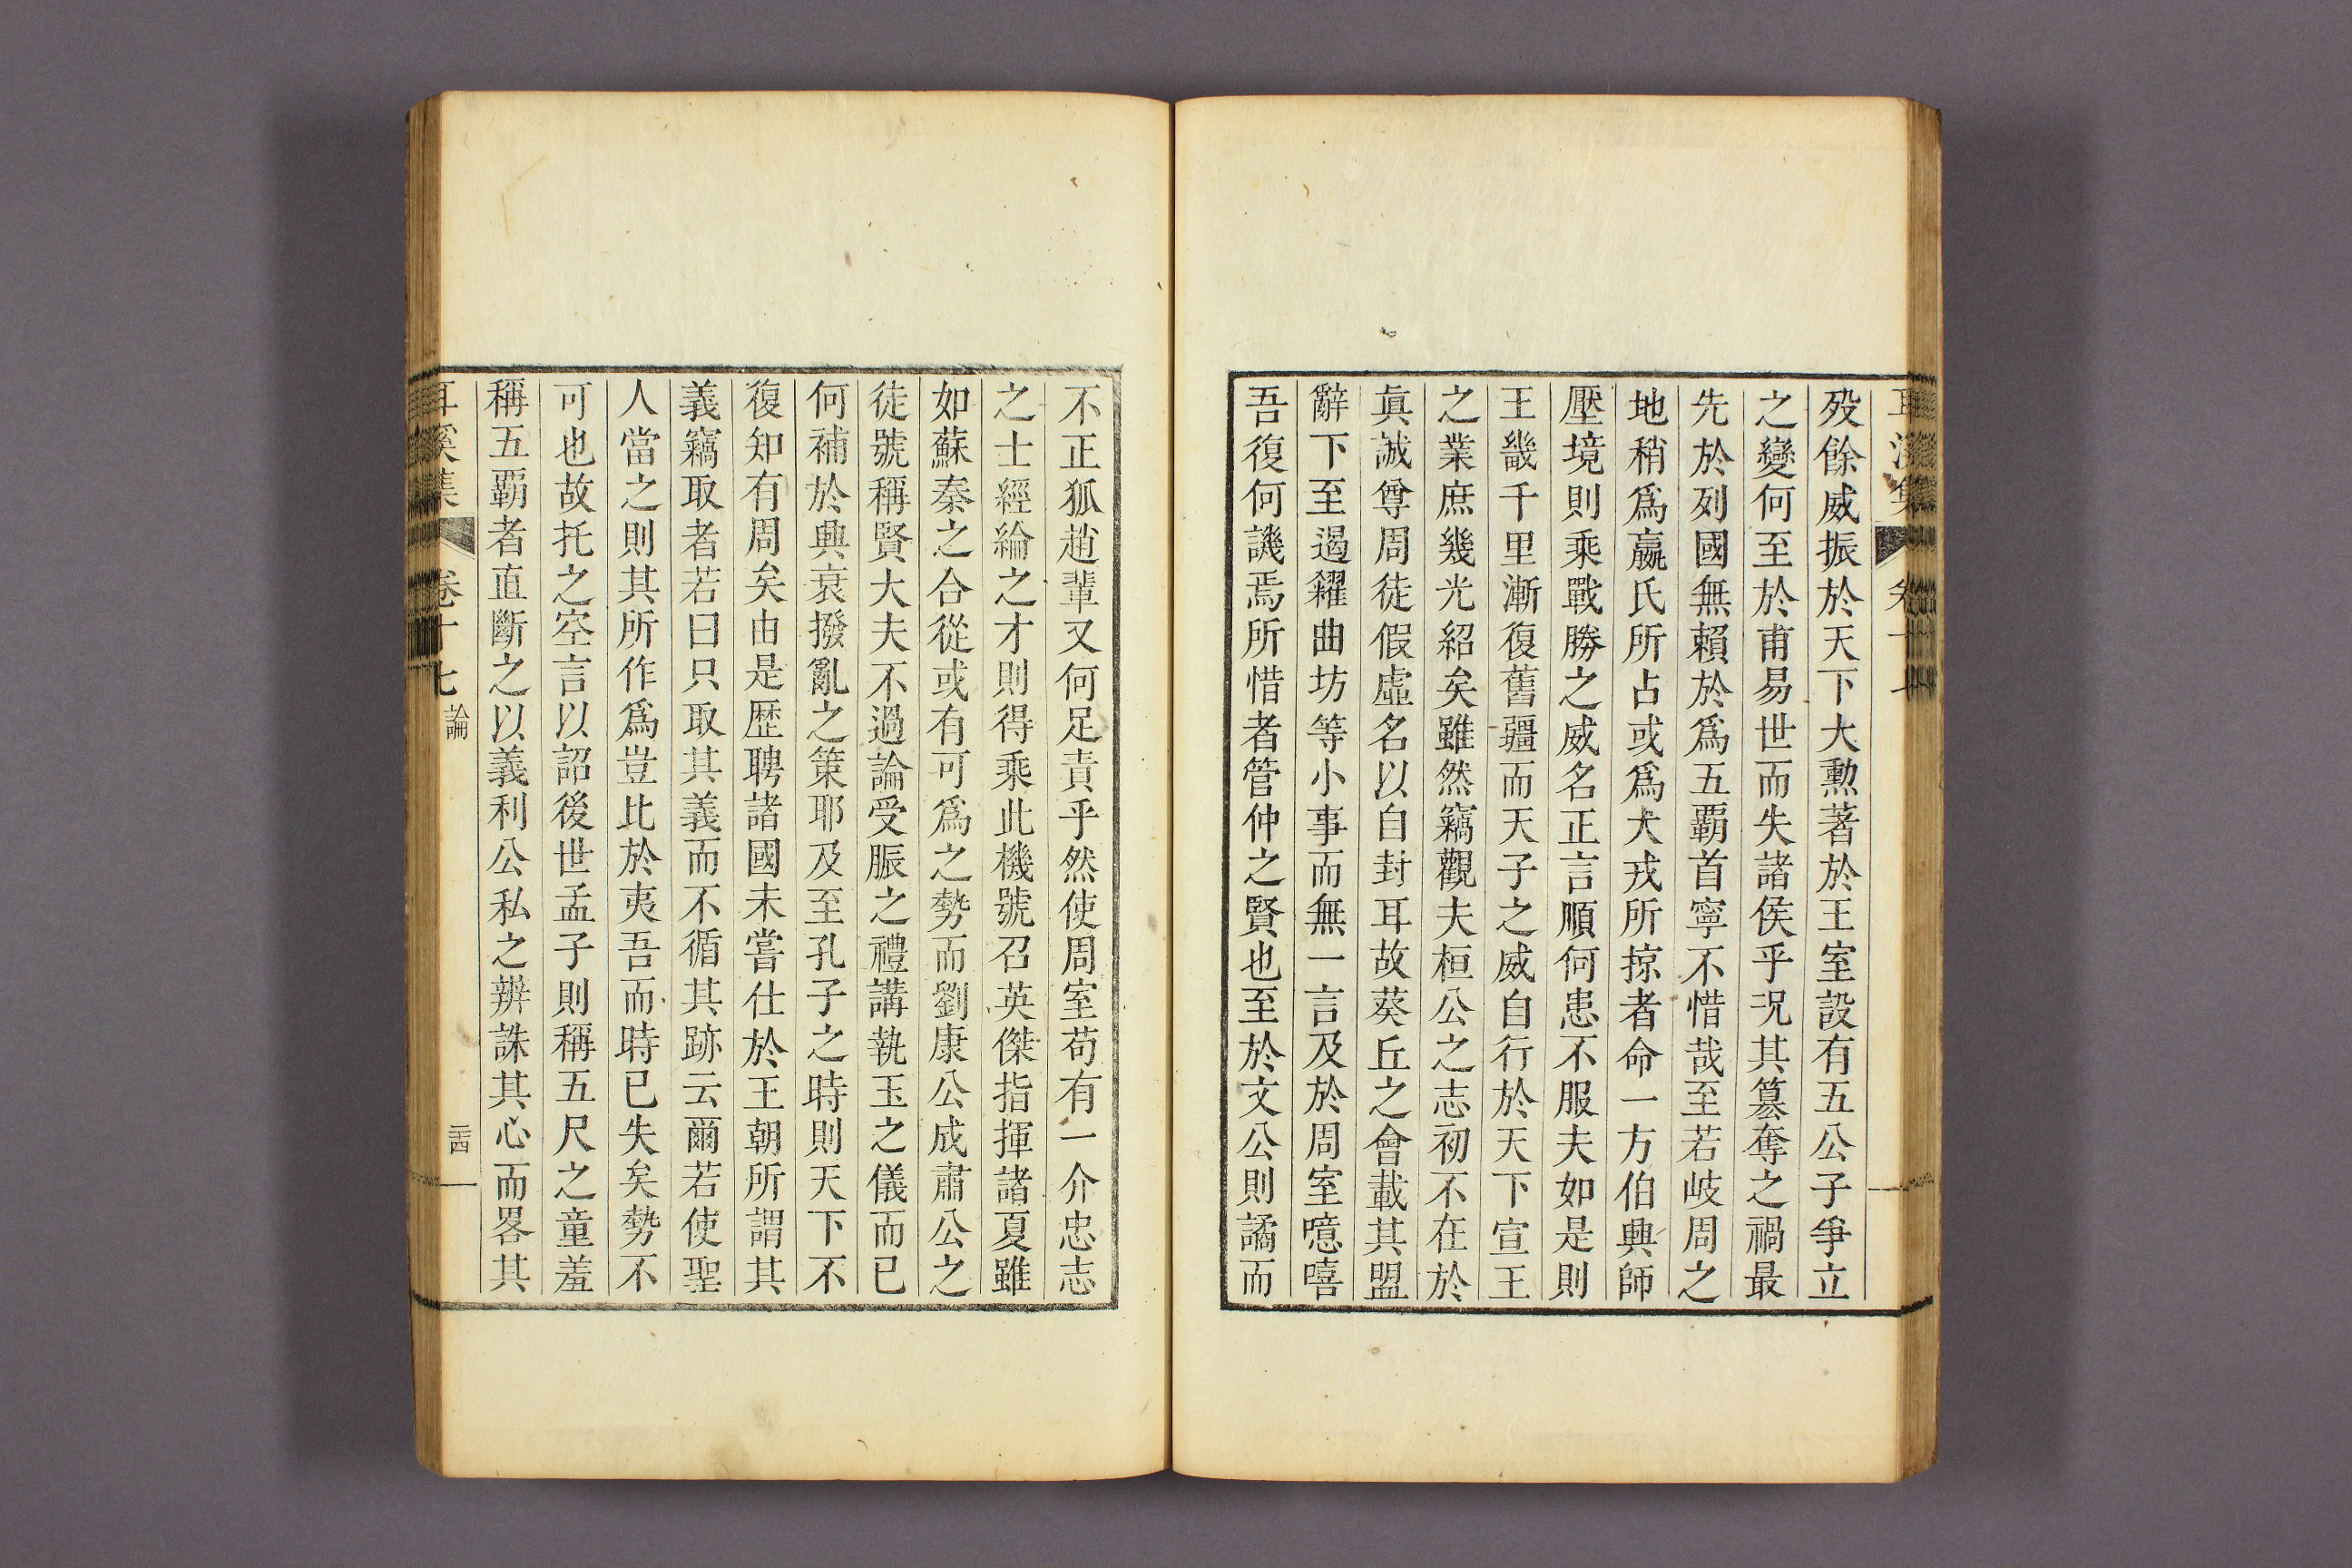 耳溪集
歿餘威振於天下大勲著於王室設有五公子爭立
之變何至於甫易世而失諸侯乎况其簒奪之禍最
先於列國無賴於爲五覇首寧不惜哉至若岐周之
地稍爲嬴氏所占或爲犬戎所掠者命一方伯興師
壓境則乘戰勝之威名正言順何患不服夫如是則
王畿千里漸復舊疆而天子之威自行於天下宣王
之業庶幾光紹矣雖然竊觀夫桓公之志初不在於
眞誠尊周徒假虛名以自封耳故葵丘之會載其盟
辭下至遏糴曲坊等小事而無一言及於周室噫嘻
吾復何譏焉所惜者管仲之賢也至於文公則譎而
不正狐趙輩又何足責乎然使周室苟有一介忠志
之士經綸之才則得乘此機號召英傑指揮諸夏雖
如蘇秦之合從或有可爲之勢而劉康公成肅公之
徒號稱賢大夫不過論受脤之禮講執玉之儀而已
何補於興衰撥亂之策耶及至孔子之時則天下不
復知有周矣由是歷聘諸國未嘗仕於王朝所謂其
義竊取者若曰只取其義而不循其跡云爾若使聖
人當之則其所作爲豈比於夷吾而時已失矣勢不
可也故托之空言以詔後世孟子則稱五尺之童羞
稱五覇者直斷之以義利公私之辨誅其心而畧其
耳溪集 卷十七 論 三四